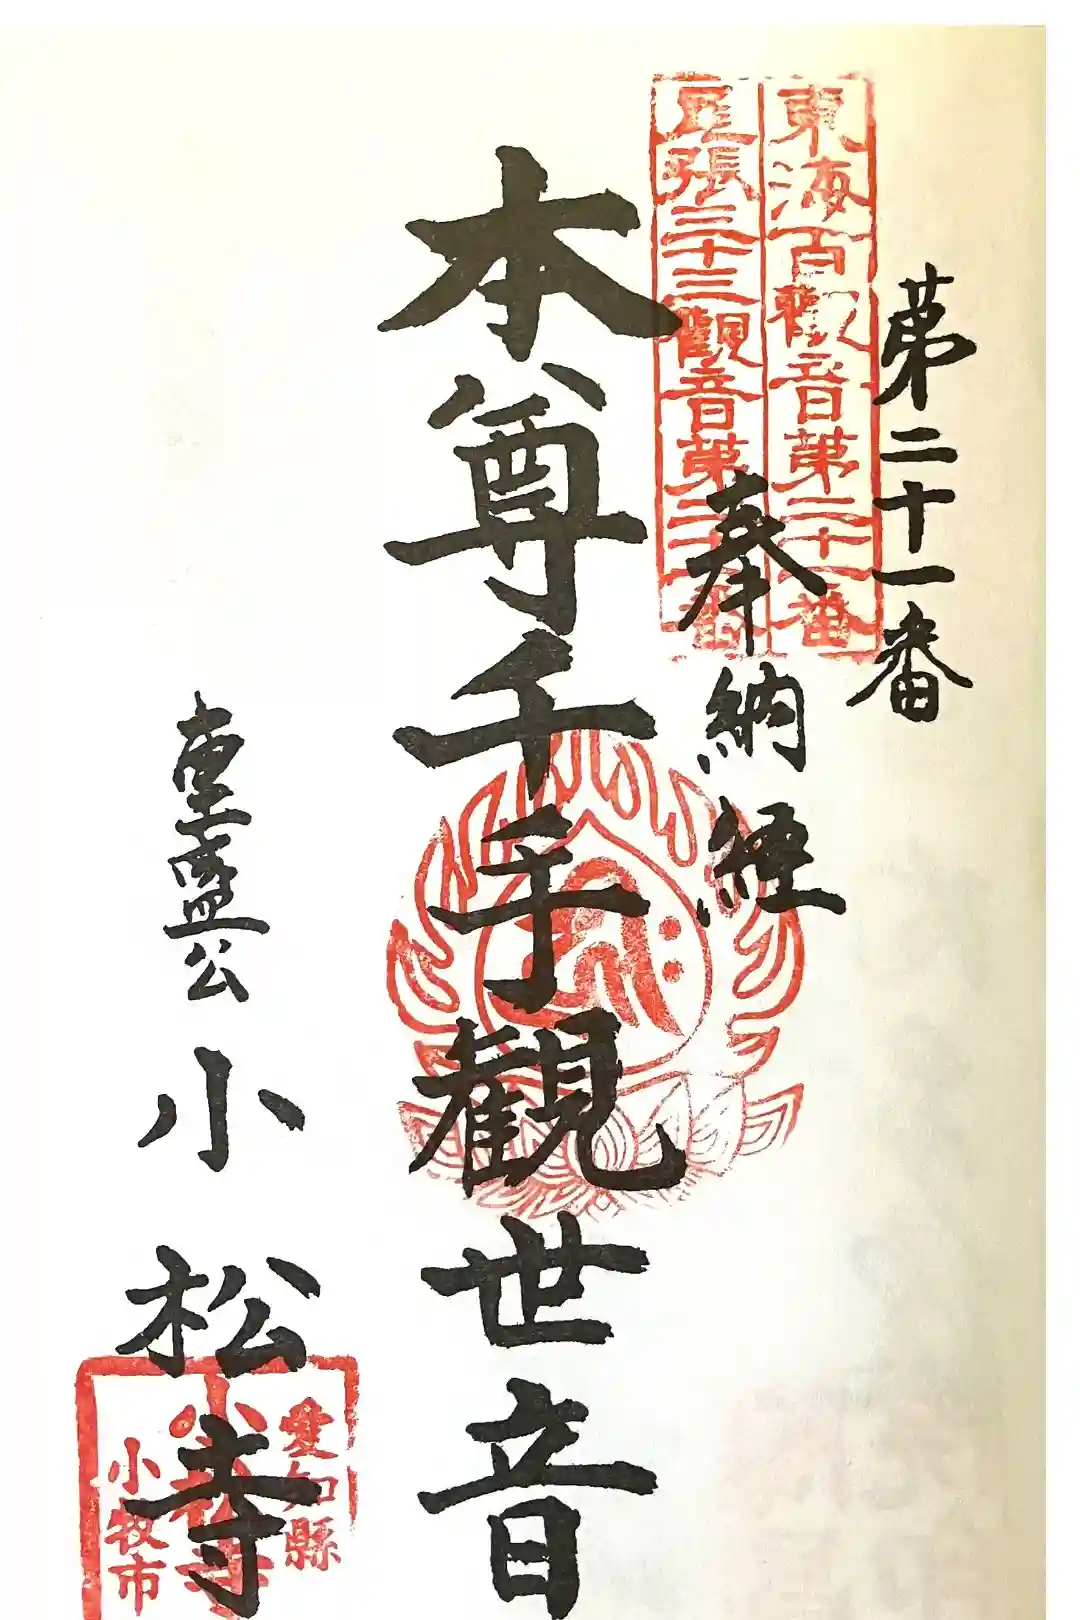 第二十一番
東海百観音第二十一番
尾張三十三観音第二十一番
奉納経
本尊千手観世音
重盛公
小松寺
愛知縣
小松寺
小牧市